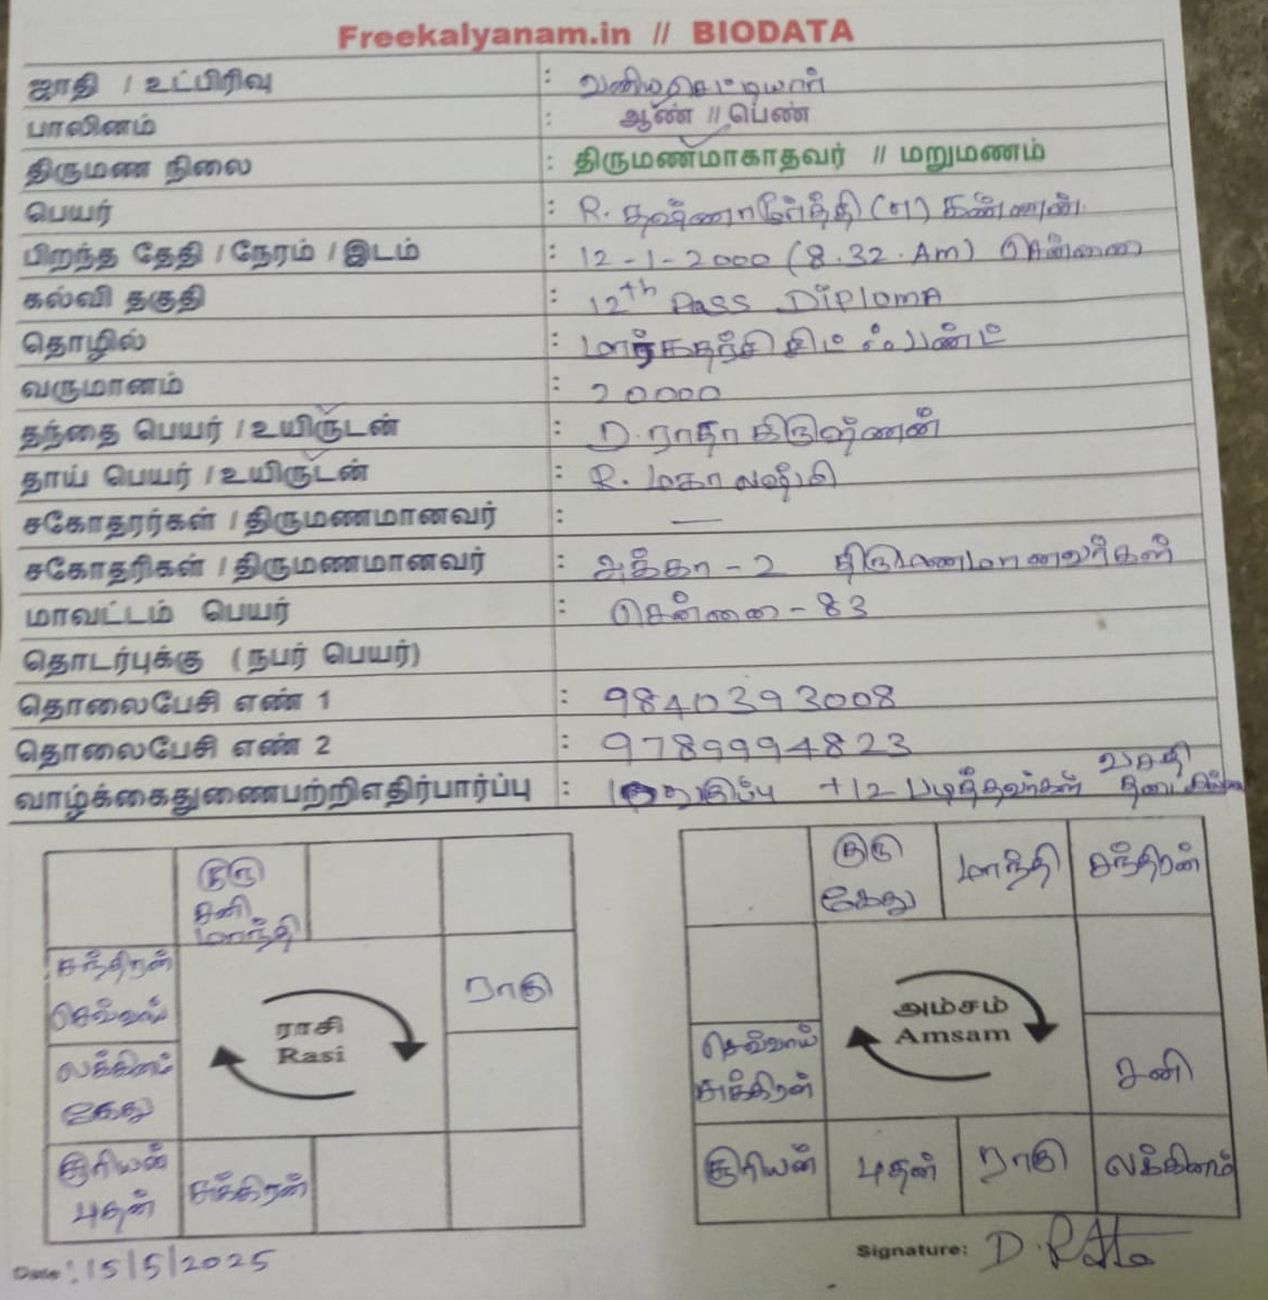 Freekalyanam.in // BIODATA
ஜாதி / உட்பிரிவு : வணிய செட்டியார்
பாலினம் : ஆண் // பெண்
திருமண நிலை : திருமணமாகாதவர் // மறுமணம்
பெயர் : R. தஷ்ணாமூர்த்தி (எ) கண்ணன்
பிறந்த தேதி / நேரம் / இடம் : 12-1-2000 (8.32.Am) சென்னை
கல்வி தகுதி : 12th Pass Diploma
தொழில் : மார்கதர்சி சிட் ஃபண்ட்
வருமானம் : 20000
தந்தை பெயர் / உயிருடன் : D. ராதா கிருஷ்ணன்
தாய் பெயர் / உயிருடன் : R. மகாலஷ்மி
சகோதரர்கள் / திருமணமானவர் : —
சகோதரிகள் / திருமணமானவர் : அக்கா - 2 திருமணமானவர்கள்
மாவட்டம் பெயர் : சென்னை - 83
தொடர்புக்கு (நபர் பெயர்)
தொலைபேசி எண் 1 : 9840393008
தொலைபேசி எண் 2 : 9789994823
வாழ்க்கைதுணைபற்றிஎதிர்பார்ப்பு : +12 படித்தவர்கள் வசதி
குரு
சனி
மாந்தி
சந்திரன்
செவ்வாய்
ராகு
ராசி
Rasi
லக்கினம்
கேது
சூரியன்
புதன்
சுக்கிரன்
குரு
கேது
மாந்தி
சந்திரன்
அம்சம்
Amsam
செவ்வாய்
சுக்கிரன்
சனி
சூரியன்
புதன்
ராகு
லக்கினம்
Date : 15/5/2025
Signature: